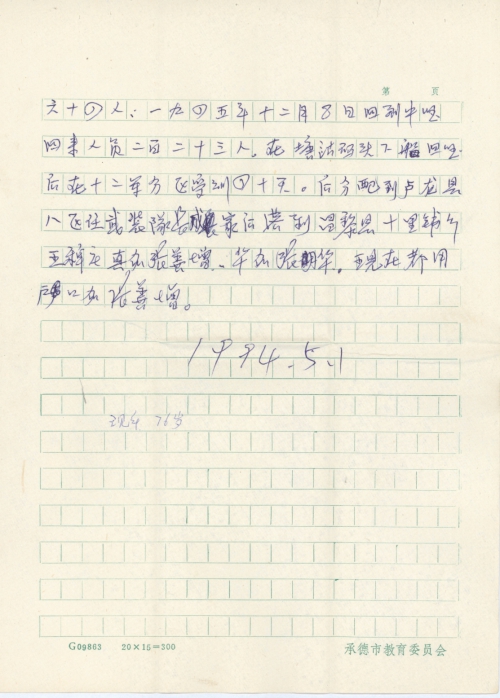 第　页
六十四人：一九四五年十二月8日回到中国
回来人员二百二十三人。在塘沽码头下船回国
后在十二军分区学训四十天。后分配到卢龙县
八区任武装队长成家后落到昌黎县十里铺乡
王 庄真加张善增、华加张明华，现在都用
户口加张善增。
1994.5.1
现年 76岁
G09863　20×15=300　承德市教育委员会